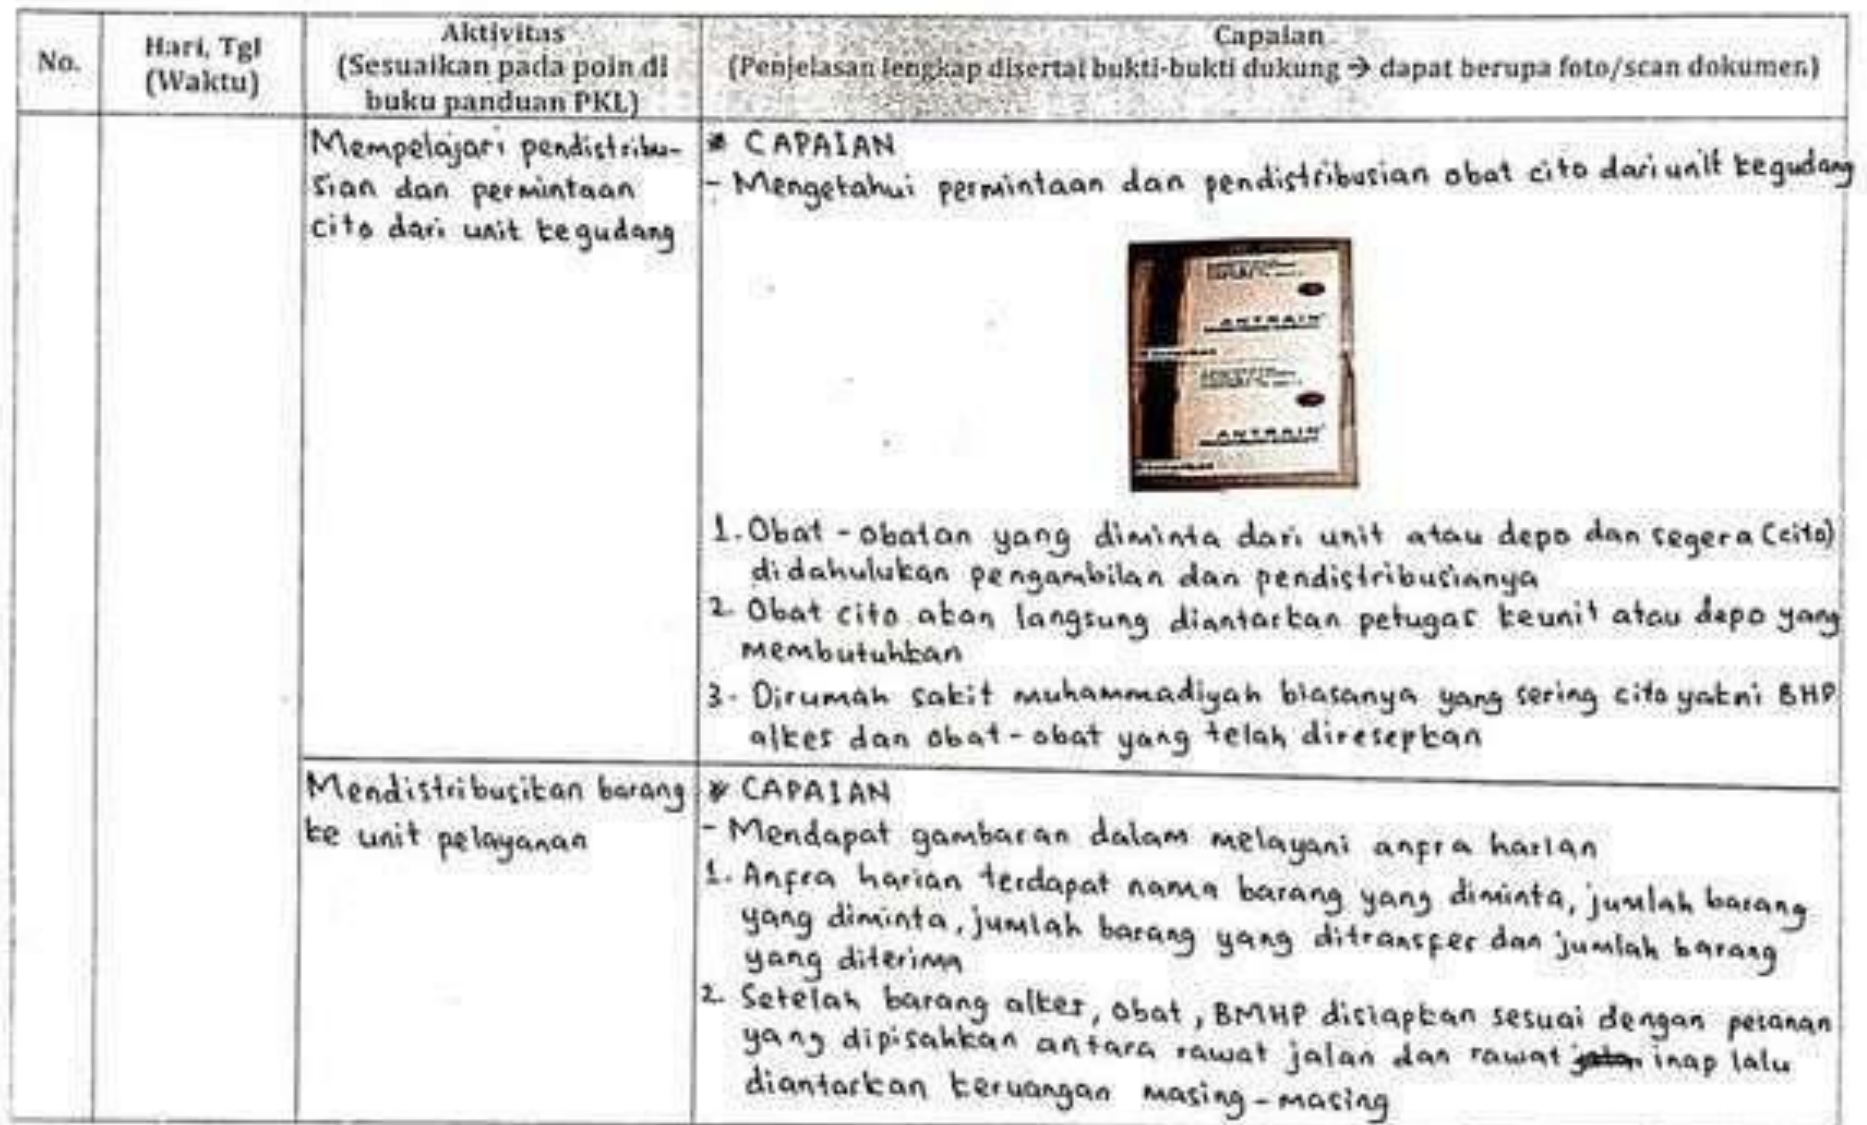 No.
Hari, Tgl
(Waktu)
Aktivitas
(Sesuaikan pada poin di
buku panduan PKL)
Capaian
(Penjelasan lengkap disertai bukti-bukti dukung → dapat berupa foto/scan dokumen)
Mempelajari pendistribu-
sian dan permintaan
cito dari unit kegudang
* CAPAIAN
- Mengetahui permintaan dan pendistribusian obat cito dari unit kegudang
ANTRAIN
ANTRAIN
1. Obat-obatan yang diminta dari unit atau depo dan segera (cito)
didahulukan pengambilan dan pendistribusianya
2. Obat cito akan langsung diantarkan petugas keunit atau depo yang
membutuhkan
3. Dirumah sakit muhammadiyah biasanya yang sering cito yakni BHP
alkes dan obat-obat yang telah diresepkan
Mendistribusikan barang
ke unit pelayanan
* CAPAIAN
- Mendapat gambaran dalam melayani anfra harian
1. Anfra harian terdapat nama barang yang diminta, jumlah barang
yang diminta, jumlah barang yang ditransfer dan jumlah barang
yang diterima
2. Setelah barang alkes, obat, BMHP disiapkan sesuai dengan pesanan
yang dipisahkan antara rawat jalan dan rawat inap lalu
diantarkan keruangan masing-masing